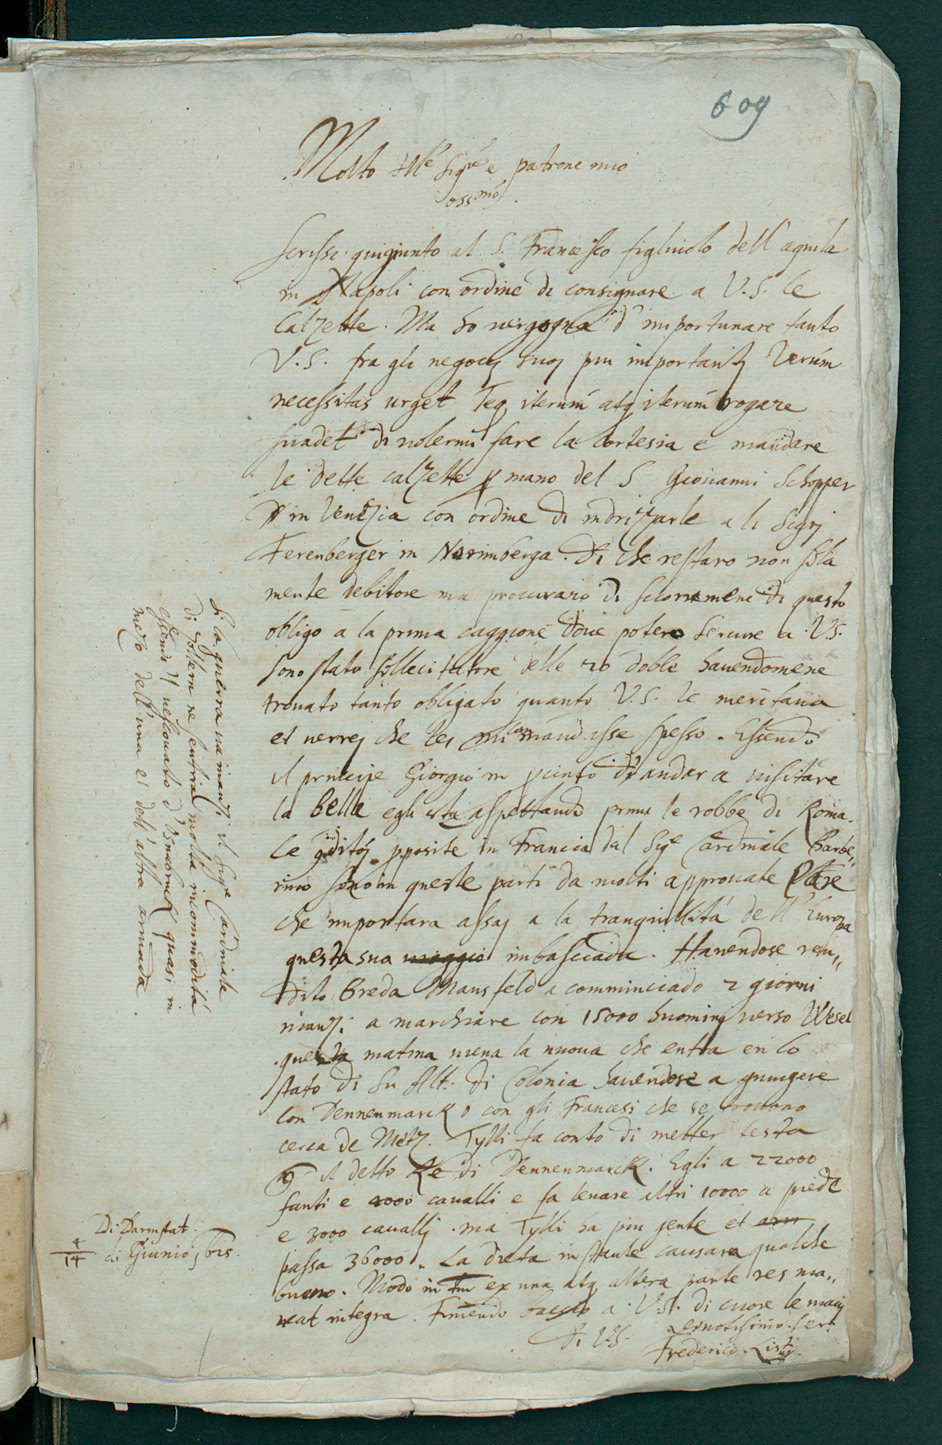 609
Molto Ill.e Sig.re e patrone mio
oss.mo
Scrisse quigiunto al S. Francesco figliuolo dell'aquila
in Napoli con ordine di consignare a V.S. le
Calzette. Ma ho vergogna d'importunare tanto
V.S. fra gli negocij suoj piu importantj Verúm
necessitas urget Teq iterúm atq iterúm rogare
suadet di volermi fare la cortesia e mandare
le dette calzette p mano del S Giovanni Schopper
in Venezia con ordine di indrizzarle a li Sigrj
Ferenberger in Norimberga. Di che restaro non sola
mente debitore ma procuraro di di questo
obligo a la prima caggione dove potero servire a V.S.
sono stato sollecitatore delle 20 doble havendomene
trovato tanto obligato quanto V.S. le meritava
et verrej che lej mi mandasse spesso. Essendo
il principe Giorgio in pcinto di andar a visitare
la bella egli sta aspettando prima le robbe di Roma.
Le pposite in Francia dal Sig.e Cardinale Barbe„
rino sono in queste parti da molti approvate
che importara assaj a la tranquillitá dell'Europa
questa sua maggio imbasciada. Havendose ren„
dito Breda Mansfeld a comminciado 2 giorni
rinanzi a marchiare con 15000 huominj verso Wesel
questa matina viena la nuova che entra en lo
stato di Su Alt. di Colonia havendose a giungere
con Dennenmarck o con gli Francesi che se trovano
cerca de Metz. Tylli fa conto di metter testa
il detto Re di Dennenmarck. Egli a 22000
fanti e 4000 cavalli e fa levare altri 10000 a piede
e 3000 cavallj. ma Tylli ha piu gente et arm
passa 36000. La dieta instante causara qualche
bueno. Modo in ex una atq altera parte res ma„
neat integra. Finiendo baccio a V.S. di cuore le manj
Di V.S. devotissimo ser.
Frederico
Si la guerra va inanzi il Sig.e Cardinale
di Zollern ne sentira molta incommoditá
essendo il vescovato d'Osnabruck quasi in
mezo dell'una et dell'altra armada.
Di Darmstat
4/14 di Giunio 1625.